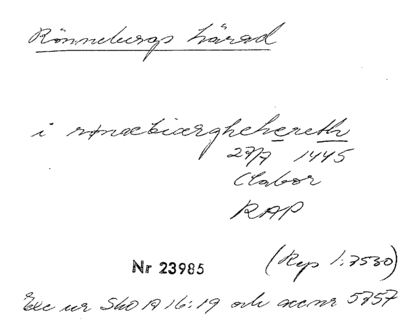 Rönnebergs härad
i rønæbiærghehereth
27/7 1445
Clabor
RAP
Nr 23985
(Rep 1:7530)
Exc ur SkO A 16:19 och accnr 5757